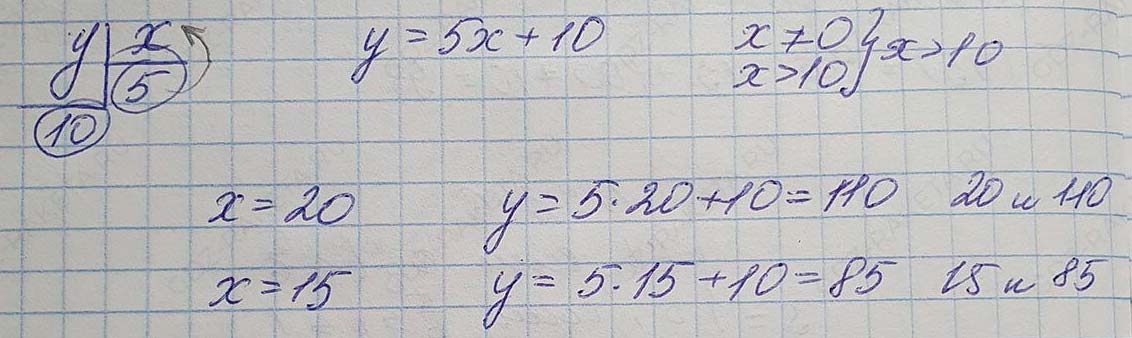 y | x y = 5x + 10 x ≠ 0 } x > 10
5 x > 10
10
x = 20 y = 5·20 + 10 = 110 20 и 110
x = 15 y = 5·15 + 10 = 85 15 и 85